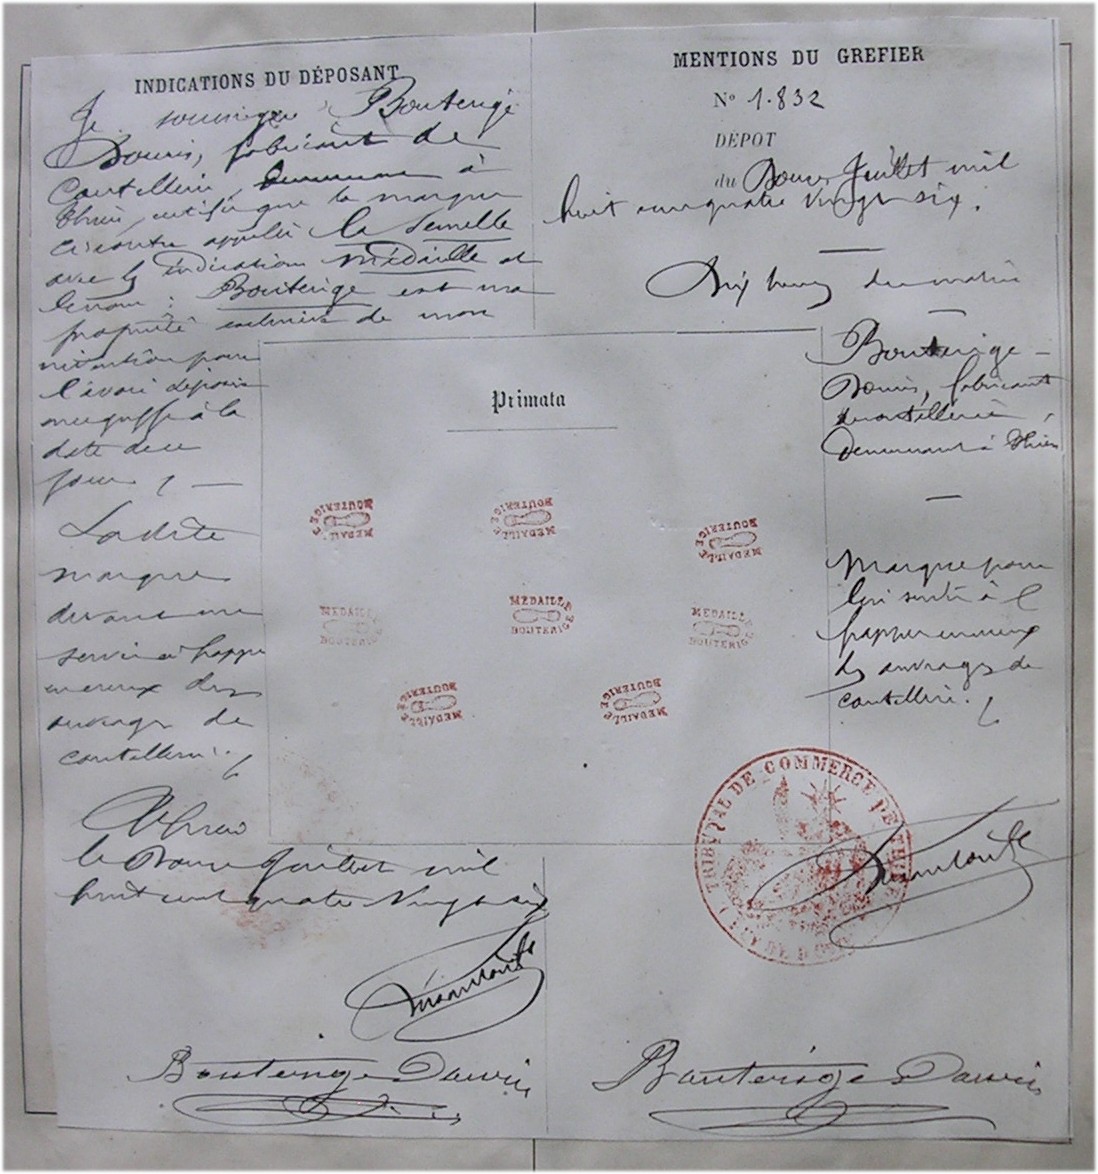 INDICATIONS DU DÉPOSANT
Je soussigné Bouterige
Douris, fabricant de
Coutellerie, demeurant à
Thiers, certifie que la marque
ci contre appelée la Semelle
avec les indications Médaille et
le nom : Bouterige est ma
propriété exclusive de mon
invention pour
l'avoir déposée
au greffe à la
date de ce
jour. —
La dite
marque
devant me
servir à frapper
en creux des
ouvrages de
coutellerie.
Thiers
le Douze Juillet mil
huit cent quatre Vingt six
Bouterige Douris
MENTIONS DU GREFIER
N° 1.832
DÉPOT
du Douze Juillet mil
huit cent quatre vingt six.
Dix heures du matin
Bouterige —
Douris, fabricant
de coutellerie,
demeurant à Thiers
Marque pour
lui servir à
frapper en creux
des ouvrages de
coutellerie.
Primata
MEDAILLE BOUTERIGE
MEDAILLE BOUTERIGE
MEDAILLE BOUTERIGE
MEDAILLE BOUTERIGE
MEDAILLE BOUTERIGE
MEDAILLE BOUTERIGE
MEDAILLE BOUTERIGE
MEDAILLE BOUTERIGE
TRIBUNAL DE COMMERCE DE THIERS
Bouterige Douris